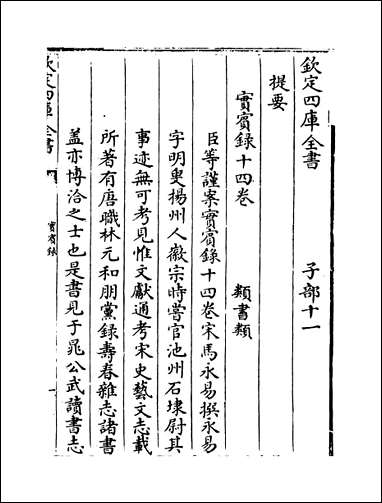 欽定四庫全書　子部十一
提要
實賓錄十四卷　類書類
臣等謹案實賓錄十四卷宋馬永易撰永易
字明叟揚州人徽宗時嘗官池州石埭尉其
事迹無可考見惟文獻通考宋史藝文志載
所著有唐職林元和朋黨録壽春雜志諸書
蓋亦博洽之士也是書見于晁公武讀書志
欽定四庫全書
實賓錄